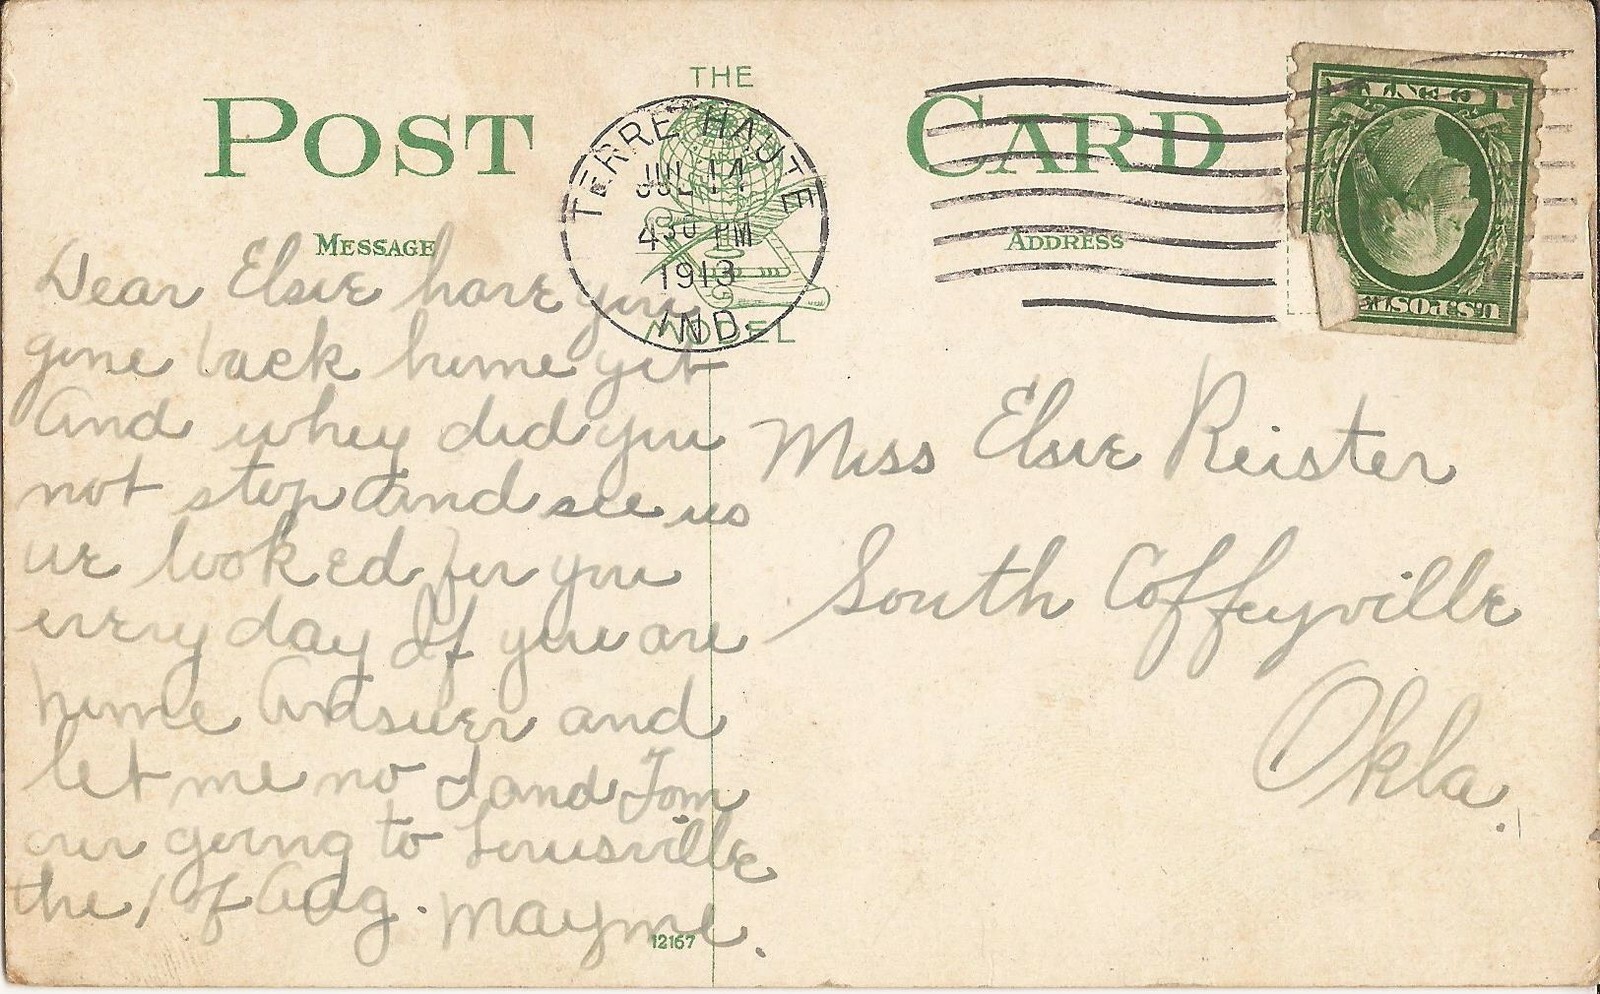 THE
POST CARD
MODEL
MESSAGE
ADDRESS
TERRE HAUTE
JUL 14
430 PM
1913
IND
U.S. POSTAGE
Dear Elsie have you
gone back home yet
And whey did you
not stop And see us
we looked for you
every day If you are
home Answer and
let me no I and Tom
our going to Louisville
the 1 of Aug. Mayme.
Miss Elsie Reister
South Coffeyville
Okla.
12167